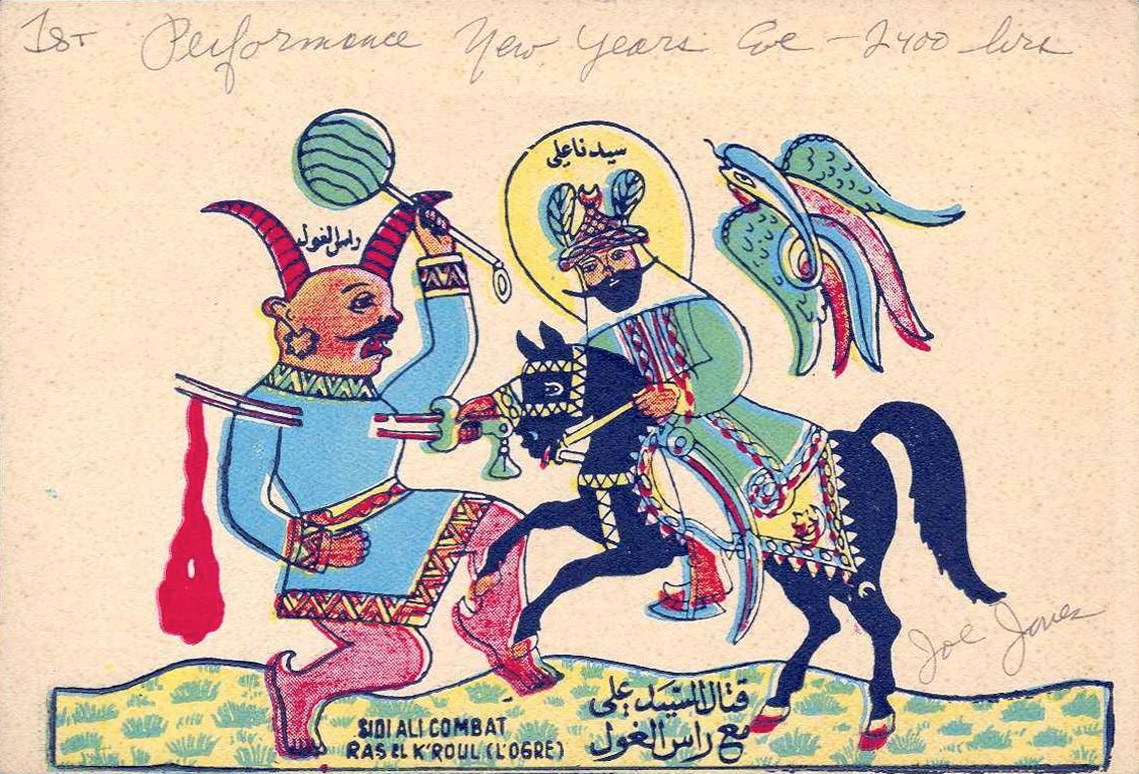 1st Performance New Years Eve - 2400 hrs
سيدنا علي
راس الغول
Joe Jones
SIDI ALI COMBAT
RAS EL K'ROUL (L'OGRE)
قتال السيد علي
مع راس الغول